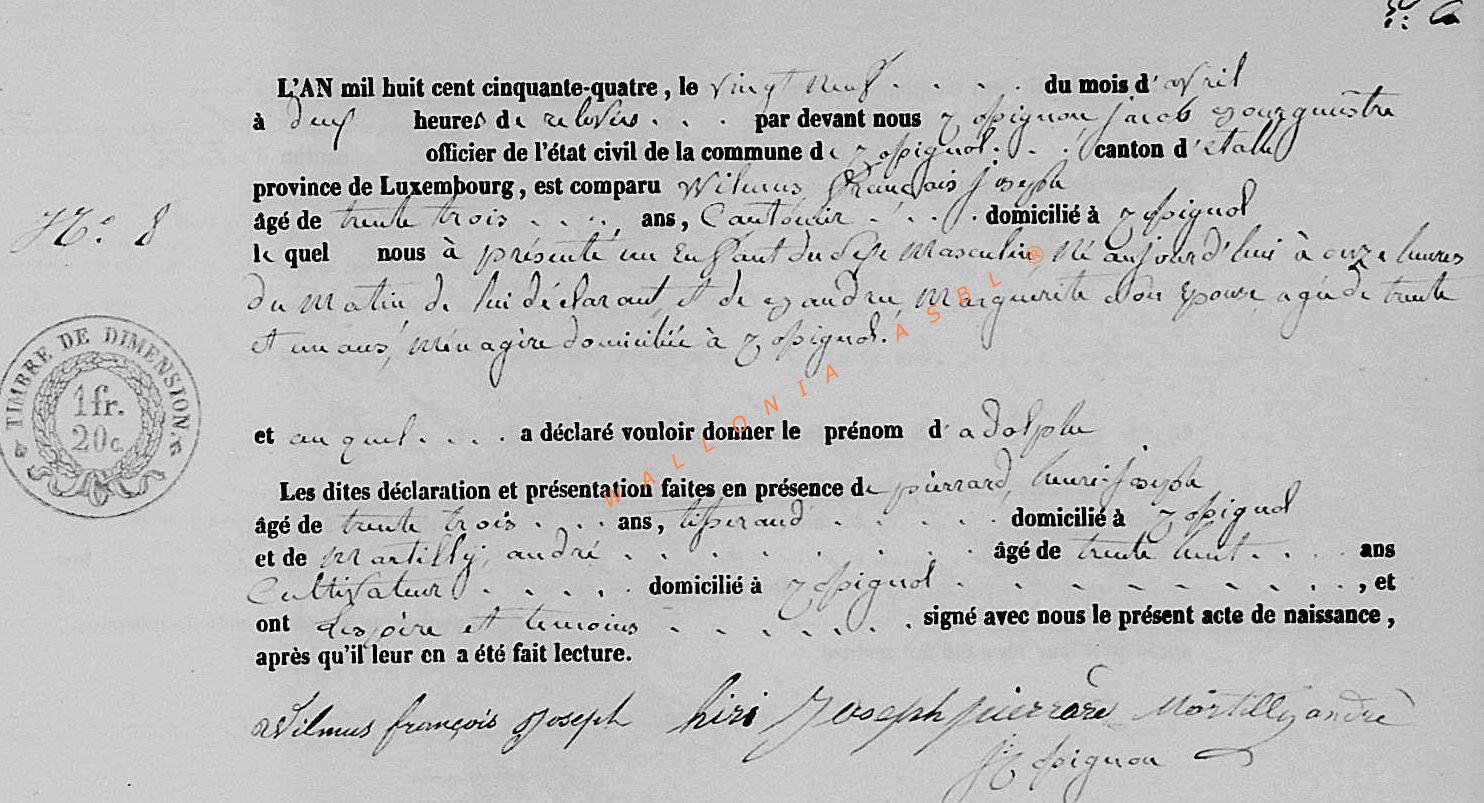 L'AN mil huit cent cinquante-quatre, le vingt neuf . . . . du mois d'avril
à deux heures de relevée . . . par devant nous Jacob Bourgmestre
officier de l'état civil de la commune de . . . canton d'étalle
province de Luxembourg, est comparu Wilmus François Joseph
âgé de trente trois . . . . ans, Cantonier . . . . domicilié à
N.° 8
le quel nous à présenté un Enfant du sexe Masculin, Né aujourd'hui à onze heures
du Matin, de lui déclarant, et de Marguerite son épouse, agée de trente
et un ans, Ménagère domiciliée à
TIMBRE DE DIMENSION
1 fr.
20 c.
et auquel . . . . a déclaré vouloir donner le prénom d'adolphe
Les dites déclaration et présentation faites en présence de pierrard, henri-joseph
âgé de trente trois . . . . ans, tisserand . . . . . domicilié à
et de Martilly, andré . . . . . . . . âgé de trente huit . . . ans
Cultivateur . . . . . domicilié à . . . . . . . . . , et
ont les père et temoins . . . . . . . signé avec nous le présent acte de naissance,
après qu'il leur en a été fait lecture.
Wilmus françois Joseph hiri Joseph pierrard Martilly andré
WALLONIA ASBL ®